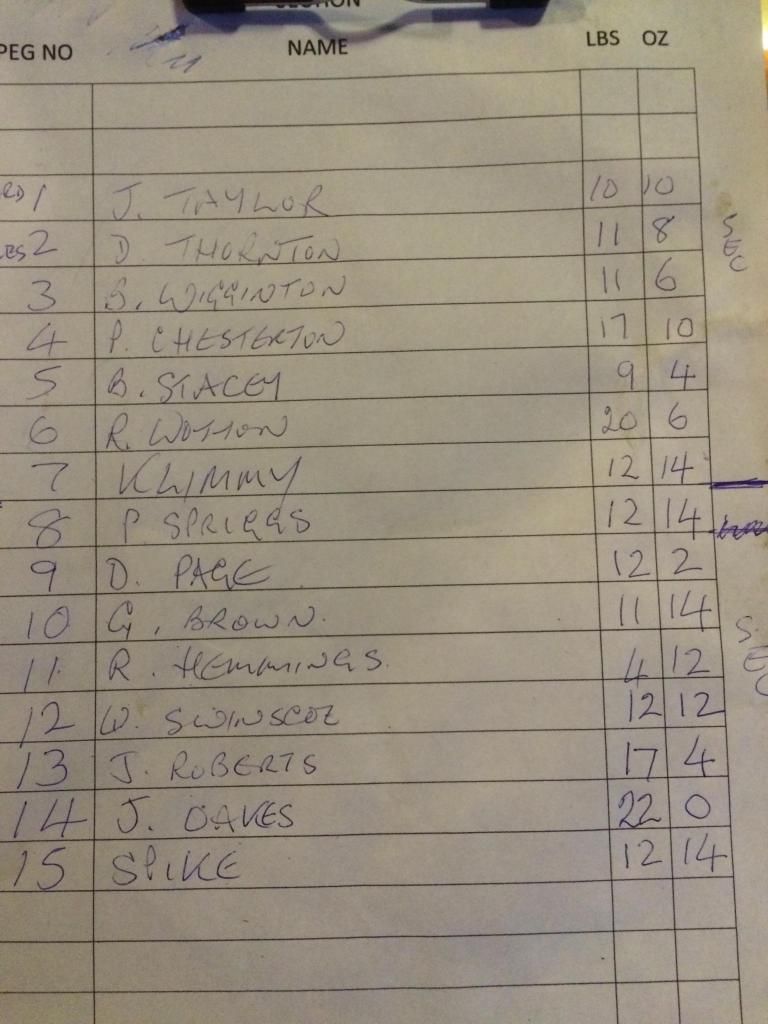 SECTION
PEG NO NAME LBS OZ
1 J. TAYLOR 10 10
2 D. THORNTON 11 8
3 B. WIGGINTON 11 6
4 P. CHESTERTON 17 10
5 B. STACEY 9 4
6 R. WOTTON 20 6
7 KLIMMY 12 14
8 P SPRIGGS 12 14
9 D. PAGE 12 2
10 G. BROWN. 11 14
11 R. HEMMINGS. 4 12
12 W. SWINSCOE 12 12
13 J. ROBERTS 17 4
14 J. OAKES 22 0
15 SPIKE 12 14
SEC
SEC